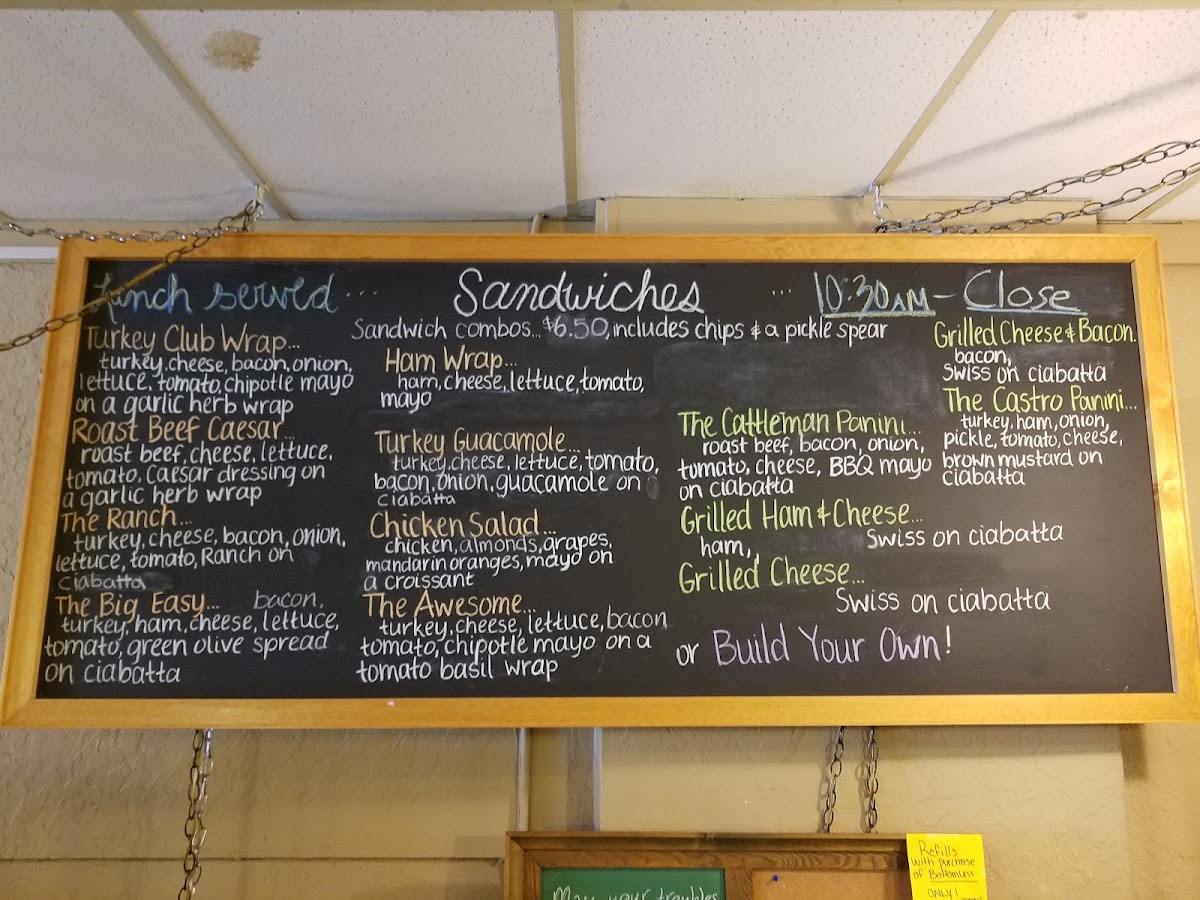 Lunch served...
Sandwiches
... 10:30AM - Close
Sandwich combos... $6.50, includes chips & a pickle spear
Turkey Club Wrap...
turkey, cheese, bacon, onion,
lettuce, tomato, chipotle mayo
on a garlic herb wrap
Roast Beef Caesar...
roast beef, cheese, lettuce,
tomato, caesar dressing on
a garlic herb wrap
The Ranch...
turkey, cheese, bacon, onion,
lettuce, tomato, Ranch on
ciabatta
The Big Easy... bacon,
turkey, ham, cheese, lettuce,
tomato, green olive spread
on ciabatta
Ham Wrap...
ham, cheese, lettuce, tomato,
mayo
Turkey Guacamole...
turkey, cheese, lettuce, tomato,
bacon, onion, guacamole on
ciabatta
Chicken Salad...
chicken, almonds, grapes,
mandarin oranges, mayo on
a croissant
The Awesome...
turkey, cheese, lettuce, bacon
tomato, chipotle mayo on a
tomato basil wrap
The Cattleman Panini...
roast beef, bacon, onion,
tomato, cheese, BBQ mayo
on ciabatta
Grilled Ham & Cheese...
ham, Swiss on ciabatta
Grilled Cheese...
Swiss on ciabatta
or Build Your Own!
Grilled Cheese & Bacon.
bacon,
Swiss on ciabatta
The Castro Panini...
turkey, ham, onion,
pickle, tomato, cheese,
brown mustard on
ciabatta
May your troubles
Refills
with purchase
of Bottomless
ONLY!